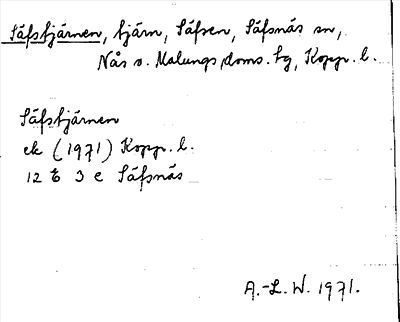 Säfstjärnen, tjärn, Säfsen, Säfsnäs sn,
Nås o. Malungs doms. tg, Kopp. l.
Säfstjärnen
ek (1971) Kopp. l.
12 E 3 e Säfsnäs
A.-L. W. 1971.